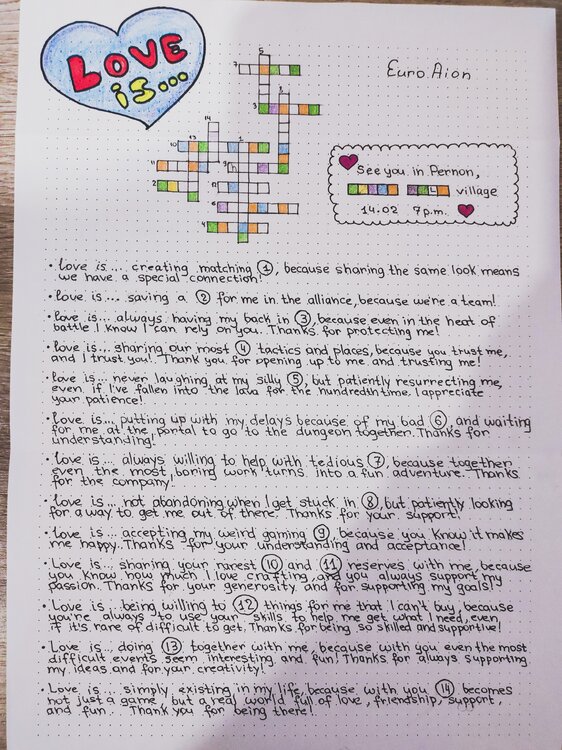 LOVE
is...
Euro.Aion
See you in Pernon,
L
village
14.02 7p.m.
5
7
3
1
14
10
13
1
11
9
h
2
12
6
4
• Love is... creating matching 1, because sharing the same look means
we have a special connection!
• Love is... saving a 2 for me in the alliance, because we're a team!
• Love is... always having my back in 3, because even in the heat of
battle I know I can rely on you. Thanks for protecting me!
• Love is... sharing our most 4 tactics and places, because you trust me,
and I trust you! Thank you for opening up to me and trusting me!
• Love is... never laughing at my silly 5, but patiently resurrecting me,
even if I've fallen into the lava for the hundredth time. I appreciate
your patience!
• Love is... putting up with my delays because of my bad 6, and waiting
for me at the portal to go to the dungeon together. Thanks for
understanding!
• Love is... always willing to help with tedious 7, because together
even the most boring work turns into a fun adventure. Thanks
for the company!
• Love is... not abandoning when I get stuck in 8, but patiently looking
for a way to get me out of there. Thanks for your support!
• Love is... accepting my weird gaming 9, because you know it makes
me happy. Thanks for your understanding and acceptance!
• Love is... sharing your rarest 10 and 11 reserves with me, because
you know how much I love crafting, and you always support my
passion. Thanks for your generosity and for supporting my goals!
• Love is... being willing to 12 things for me that I can't buy, because
you're always to use your skills to help me get what I need, even
if it's rare of difficult to get. Thanks for being so skilled and supportive!
• Love is... doing 13 together with me, because with you even the most
difficult events seem interesting and fun! Thanks for always supporting
my ideas and for your creativity!
• Love is... simply existing in my life, because with you 14 becomes
not just a game but a real world full of love, friendship, support,
and fun. Thank you for being there!